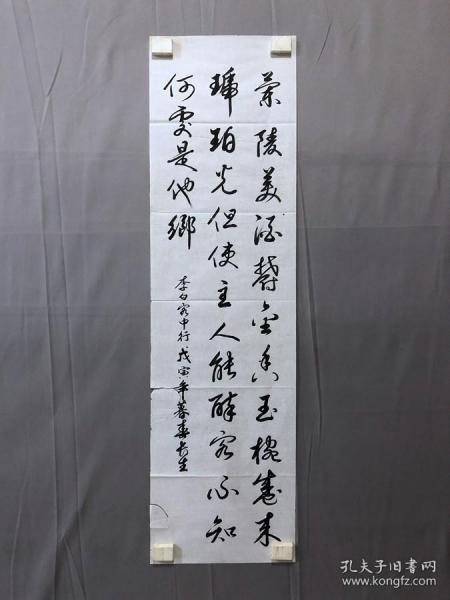 兰陵美酒郁金香玉椀盛来
琥珀光但使主人能醉客不知
何处是他乡
李白客中行戊寅年暮春长生
孔夫子旧书网
www.kongfz.com